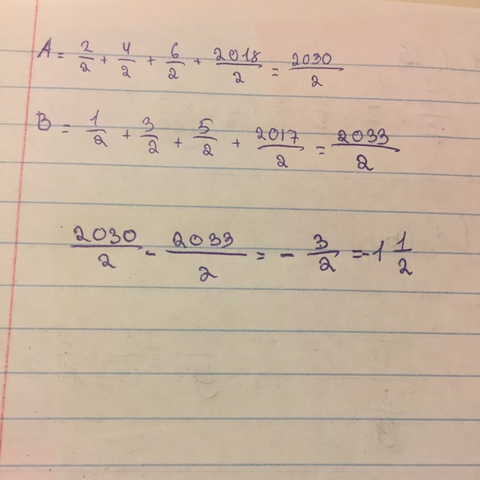 A = 2/2 + 4/2 + 6/2 + 2018/2 = 2030/2
B = 1/2 + 3/2 + 5/2 + 2017/2 = 2033/2
2030/2 - 2033/2 = - 3/2 = -1 1/2